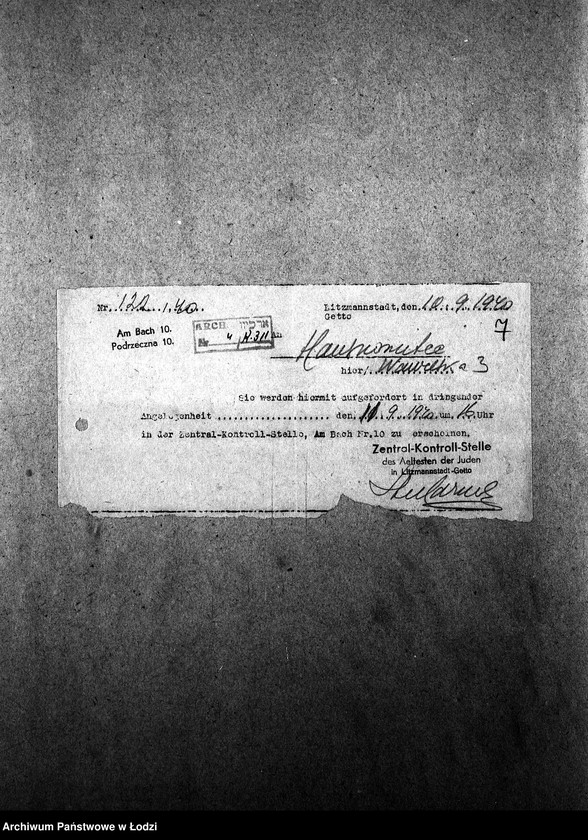 Nr. 122./40.
Litzmannstadt, den. 10. 9. 1940
Getto
7
Am Bach 10.
Podrzeczna 10.
ARCH ארכיון
Nr. 4
An
hier/.
3
Sie werden hiermit aufgefordert in dringender
Angelegenheit .................... den, 11. 9. 1940 um 16 Uhr
in der Zentral-Kontroll-Stelle, Am Bach Nr.10 zu erscheinen.
Zentral-Kontroll-Stelle
des Aeltesten der Juden
in Litzmannstadt-Getto
Archiwum Państwowe w Łodzi